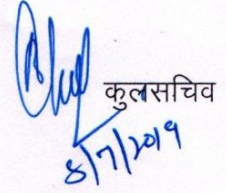 कुलसचिव
8/7/2019